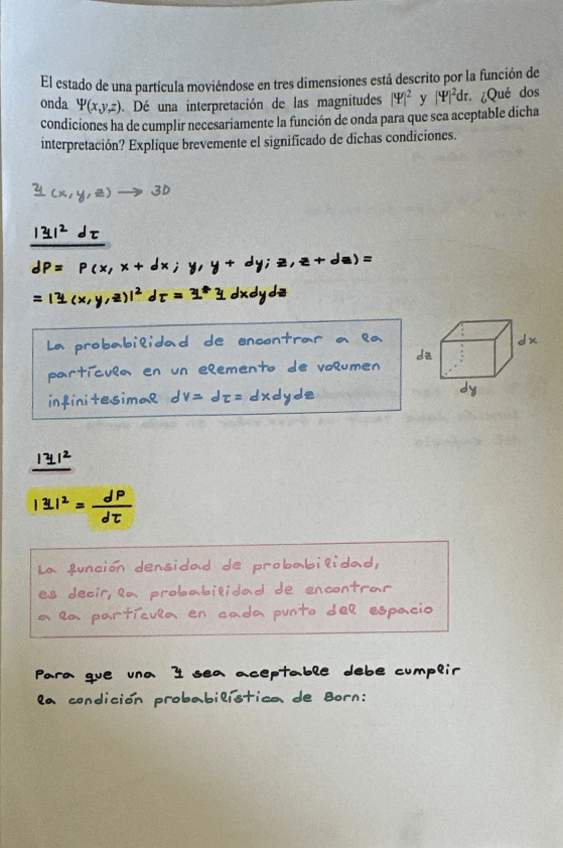 El estado de una partícula moviéndose en tres dimensiones está descrito por la función de
onda Ψ(x,y,z). Dé una interpretación de las magnitudes |Ψ|² y |Ψ|²dτ. ¿Qué dos
condiciones ha de cumplir necesariamente la función de onda para que sea aceptable dicha
interpretación? Explique brevemente el significado de dichas condiciones.
Ψ(x,y,z) → 3D
|Ψ|² dτ
dP = P(x, x + dx; y, y + dy; z, z + dz) =
= |Ψ(x,y,z)|² dτ = Ψ* Ψ dxdydz
La probabilidad de encontrar a la
partícula en un elemento de volumen
infinitesimal dV = dτ = dxdydz
dz
dx
dy
|Ψ|²
|Ψ|² = dP
dτ
La función densidad de probabilidad,
es decir, la probabilidad de encontrar
a la partícula en cada punto del espacio
Para que una Ψ sea aceptable debe cumplir
la condición probabilística de Born: